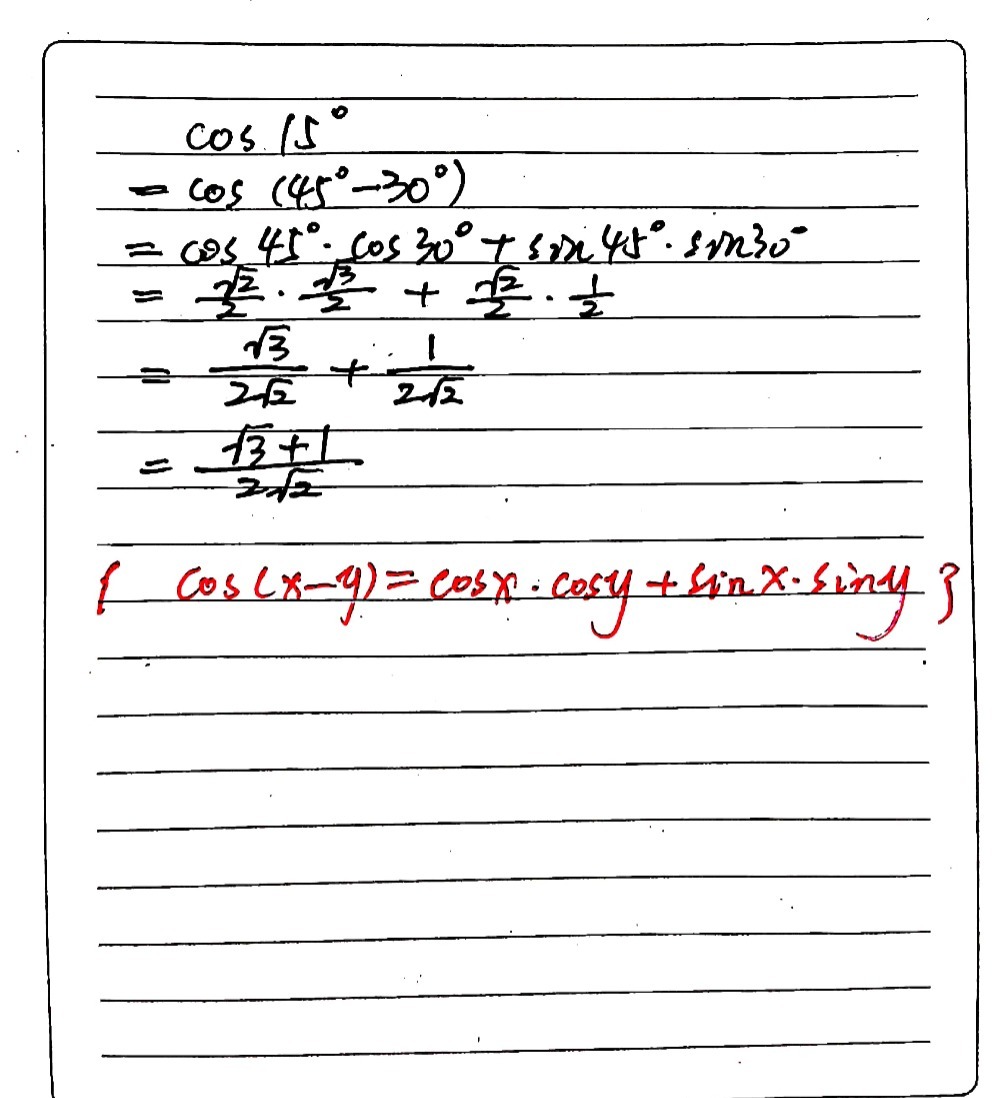 cos 15°
= cos (45°-30°)
= cos 45°· cos 30° + sin 45°· sin 30°
= √2/2 · √3/2 + √2/2 · 1/2
= √3/2√2 + 1/2√2
= √3+1/2√2
{ cos(x-y)=cosx·cosy+sinx·siny }